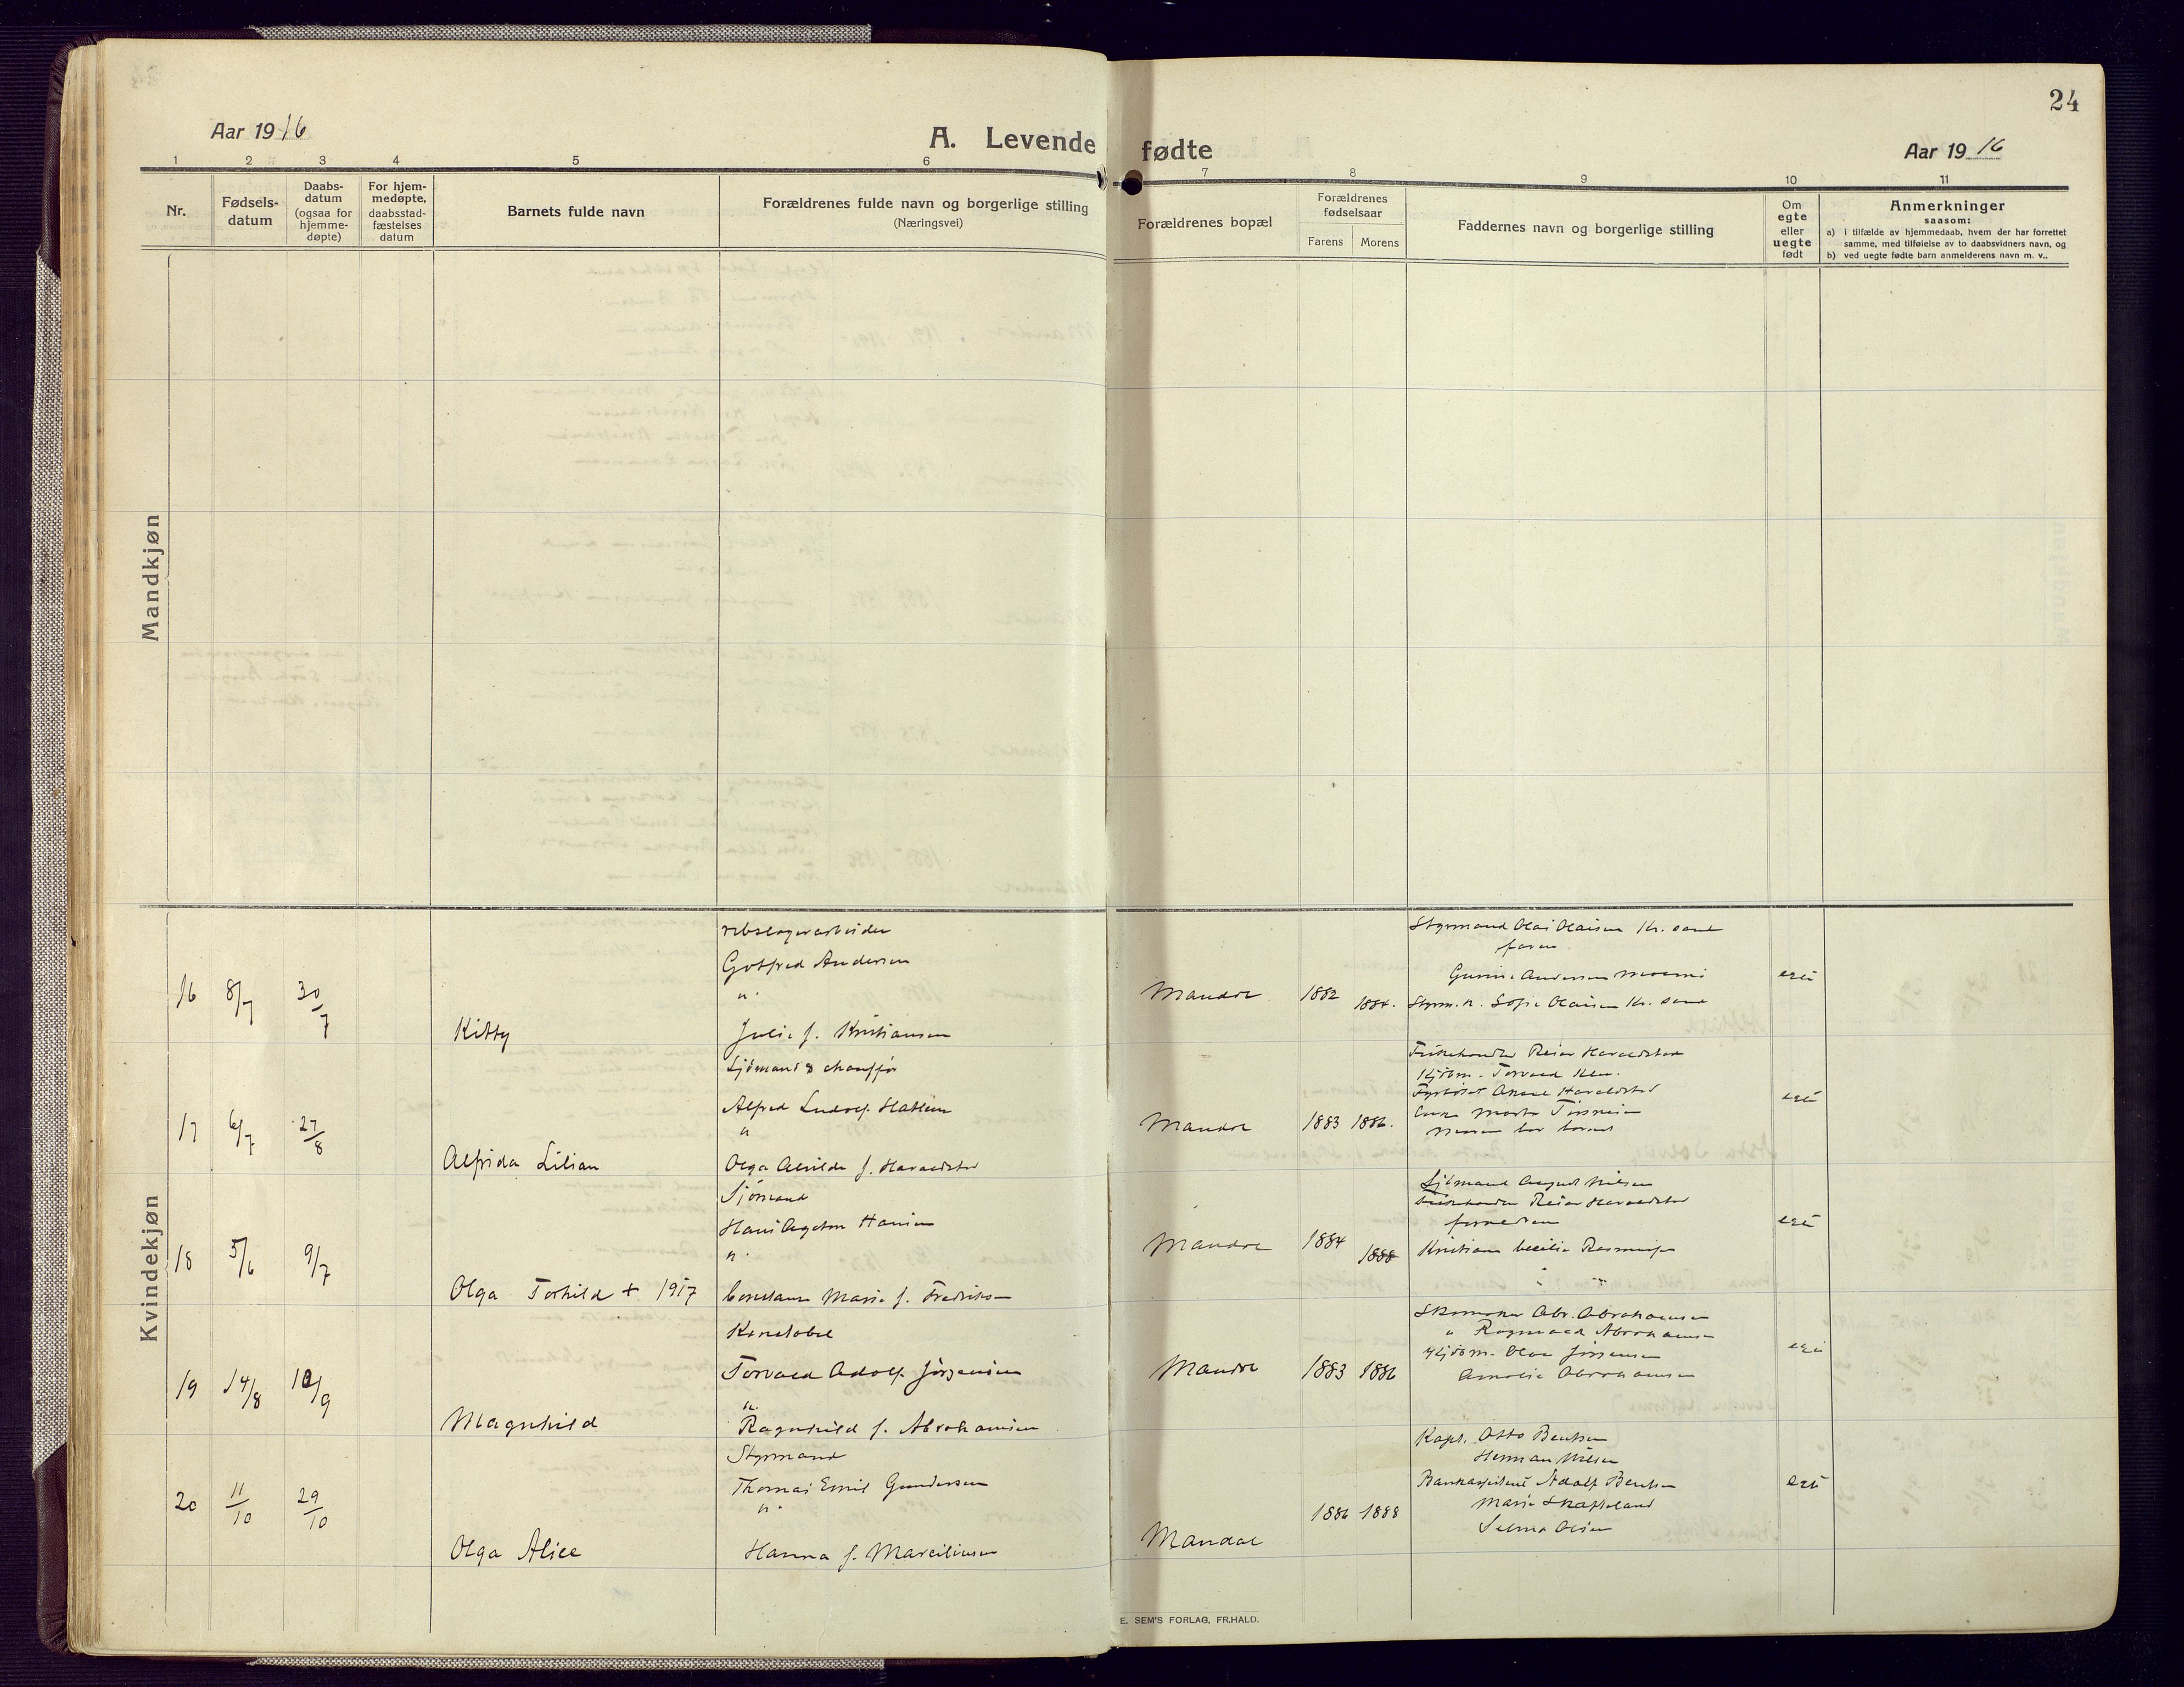 24
Aar 1916
A. Levende fødte
Aar 1916
1 2 3 4 5 6 7 8 9 10 11
Nr.
Fødsels-
datum
Daabs-
datum
(ogsaa for
hjemme-
døpte)
For hjem-
medøpte,
daabsstad-
fæstelses
datum
Barnets fulde navn
Forældrenes fulde navn og borgerlige stilling
(Næringsvei)
Forældrenes bopæl
Forældrenes
fødselsaar
Farens Morens
Faddernes navn og borgerlige stilling
Om
egte
eller
uegte
født
Anmerkninger
saasom:
a) i tilfælde av hjemmedaab, hvem der har forrettet
samme, med tilføielse av to daabsvidners navn, og
b) ved uegte fødte barn anmelderens navn m. v..
Mandkjøn
Kvindekjøn
16 8/7 30/7
Kitty
rebslagerarbeider
Gotfred Andersen
"
Julie f. Kristiansen
Mandal 1882 1884.
Styrmand Olai Olaisen Kr. sand
faren
Gunine Andersen
Styrm. k. Sofie Olaisen Kr. sand
egte
17 6/7 27/8
Alfrida Lilian
Sjömand & chauffør
Alfred Ludolf
"
Olga Alvilde f. Haraldstad
Mandal 1883 1886.
Fiskehandler Reier Haraldstad
Kjöbm. Torvald
Haraldstad
Marta
moren bar barnet
egte
18 5/6 9/7
Olga Torhild + 1917
Sjömand
Hans Hansen
"
Constanse Marie f. Fredriksen
Mandal 1884 1888
Sjömand August Nilsen
Fiskehandler Reier Haraldstad
forældrene
Kristiane Cecilie
egte
19 14/8 10/9
Magnhild
Konstabel
Torvald Adolf Jörgensen
"
Ragnhild f. Abrahamsen
Mandal 1883 1886
Skomaker Abr. Abrahamsen
" Abrahamsen
Kjöbm. Olav Jörgensen
Amalie Abrahamsen
egte
20 11/10 29/10
Olga Alice
Styrmand
Thomas Emil Gundersen
"
Hanna f. Marciliusen
Mandal 1886 1888
Kapt. Otto Bentsen
Herman Nilsen
Bankassistent Adolf Bentsen
Marie Skofteland
Selma Olsen
egte
E. SEM'S FORLAG, FR.HALD.